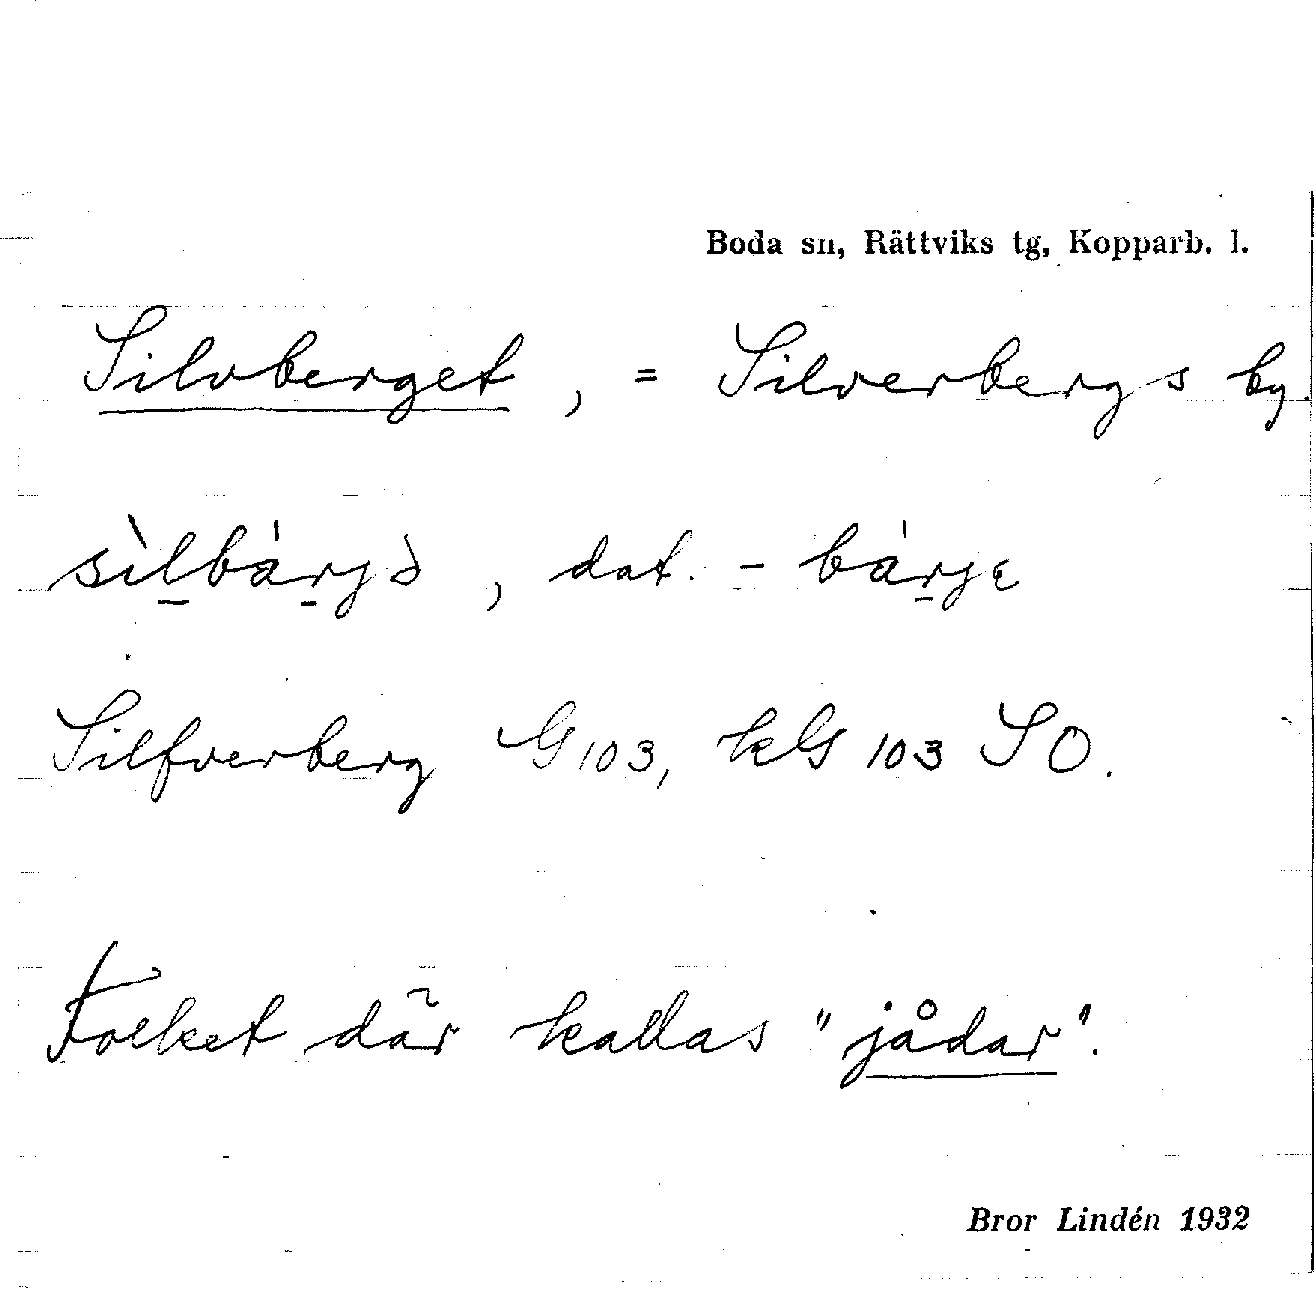 Boda sn, Rättviks tg, Kopparb. l.
Silvberget, = Silverbergs by.
sìl̠bár̠jò, dat. - bár̠jɛ
Silfverberg G 103, kG 103 SO.
Folket där kallas "jådar".
Bror Lindén 1932